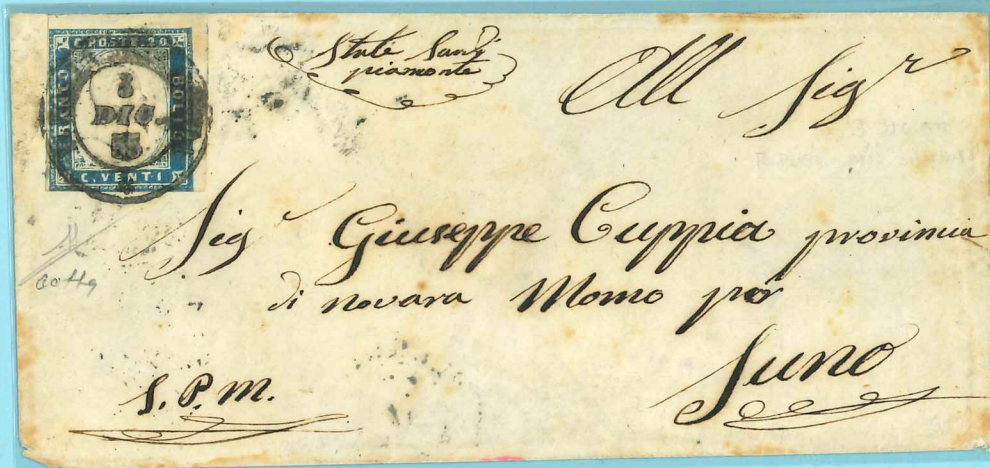 C. POSTE 20
FRANCO
BOLLO
C. VENTI
8
DIC.
Stati Sardi
piamonte
All Sigr
Sigr Giuseppe Cuppia provincia
di novara Momo per
Suno
S. P. M.